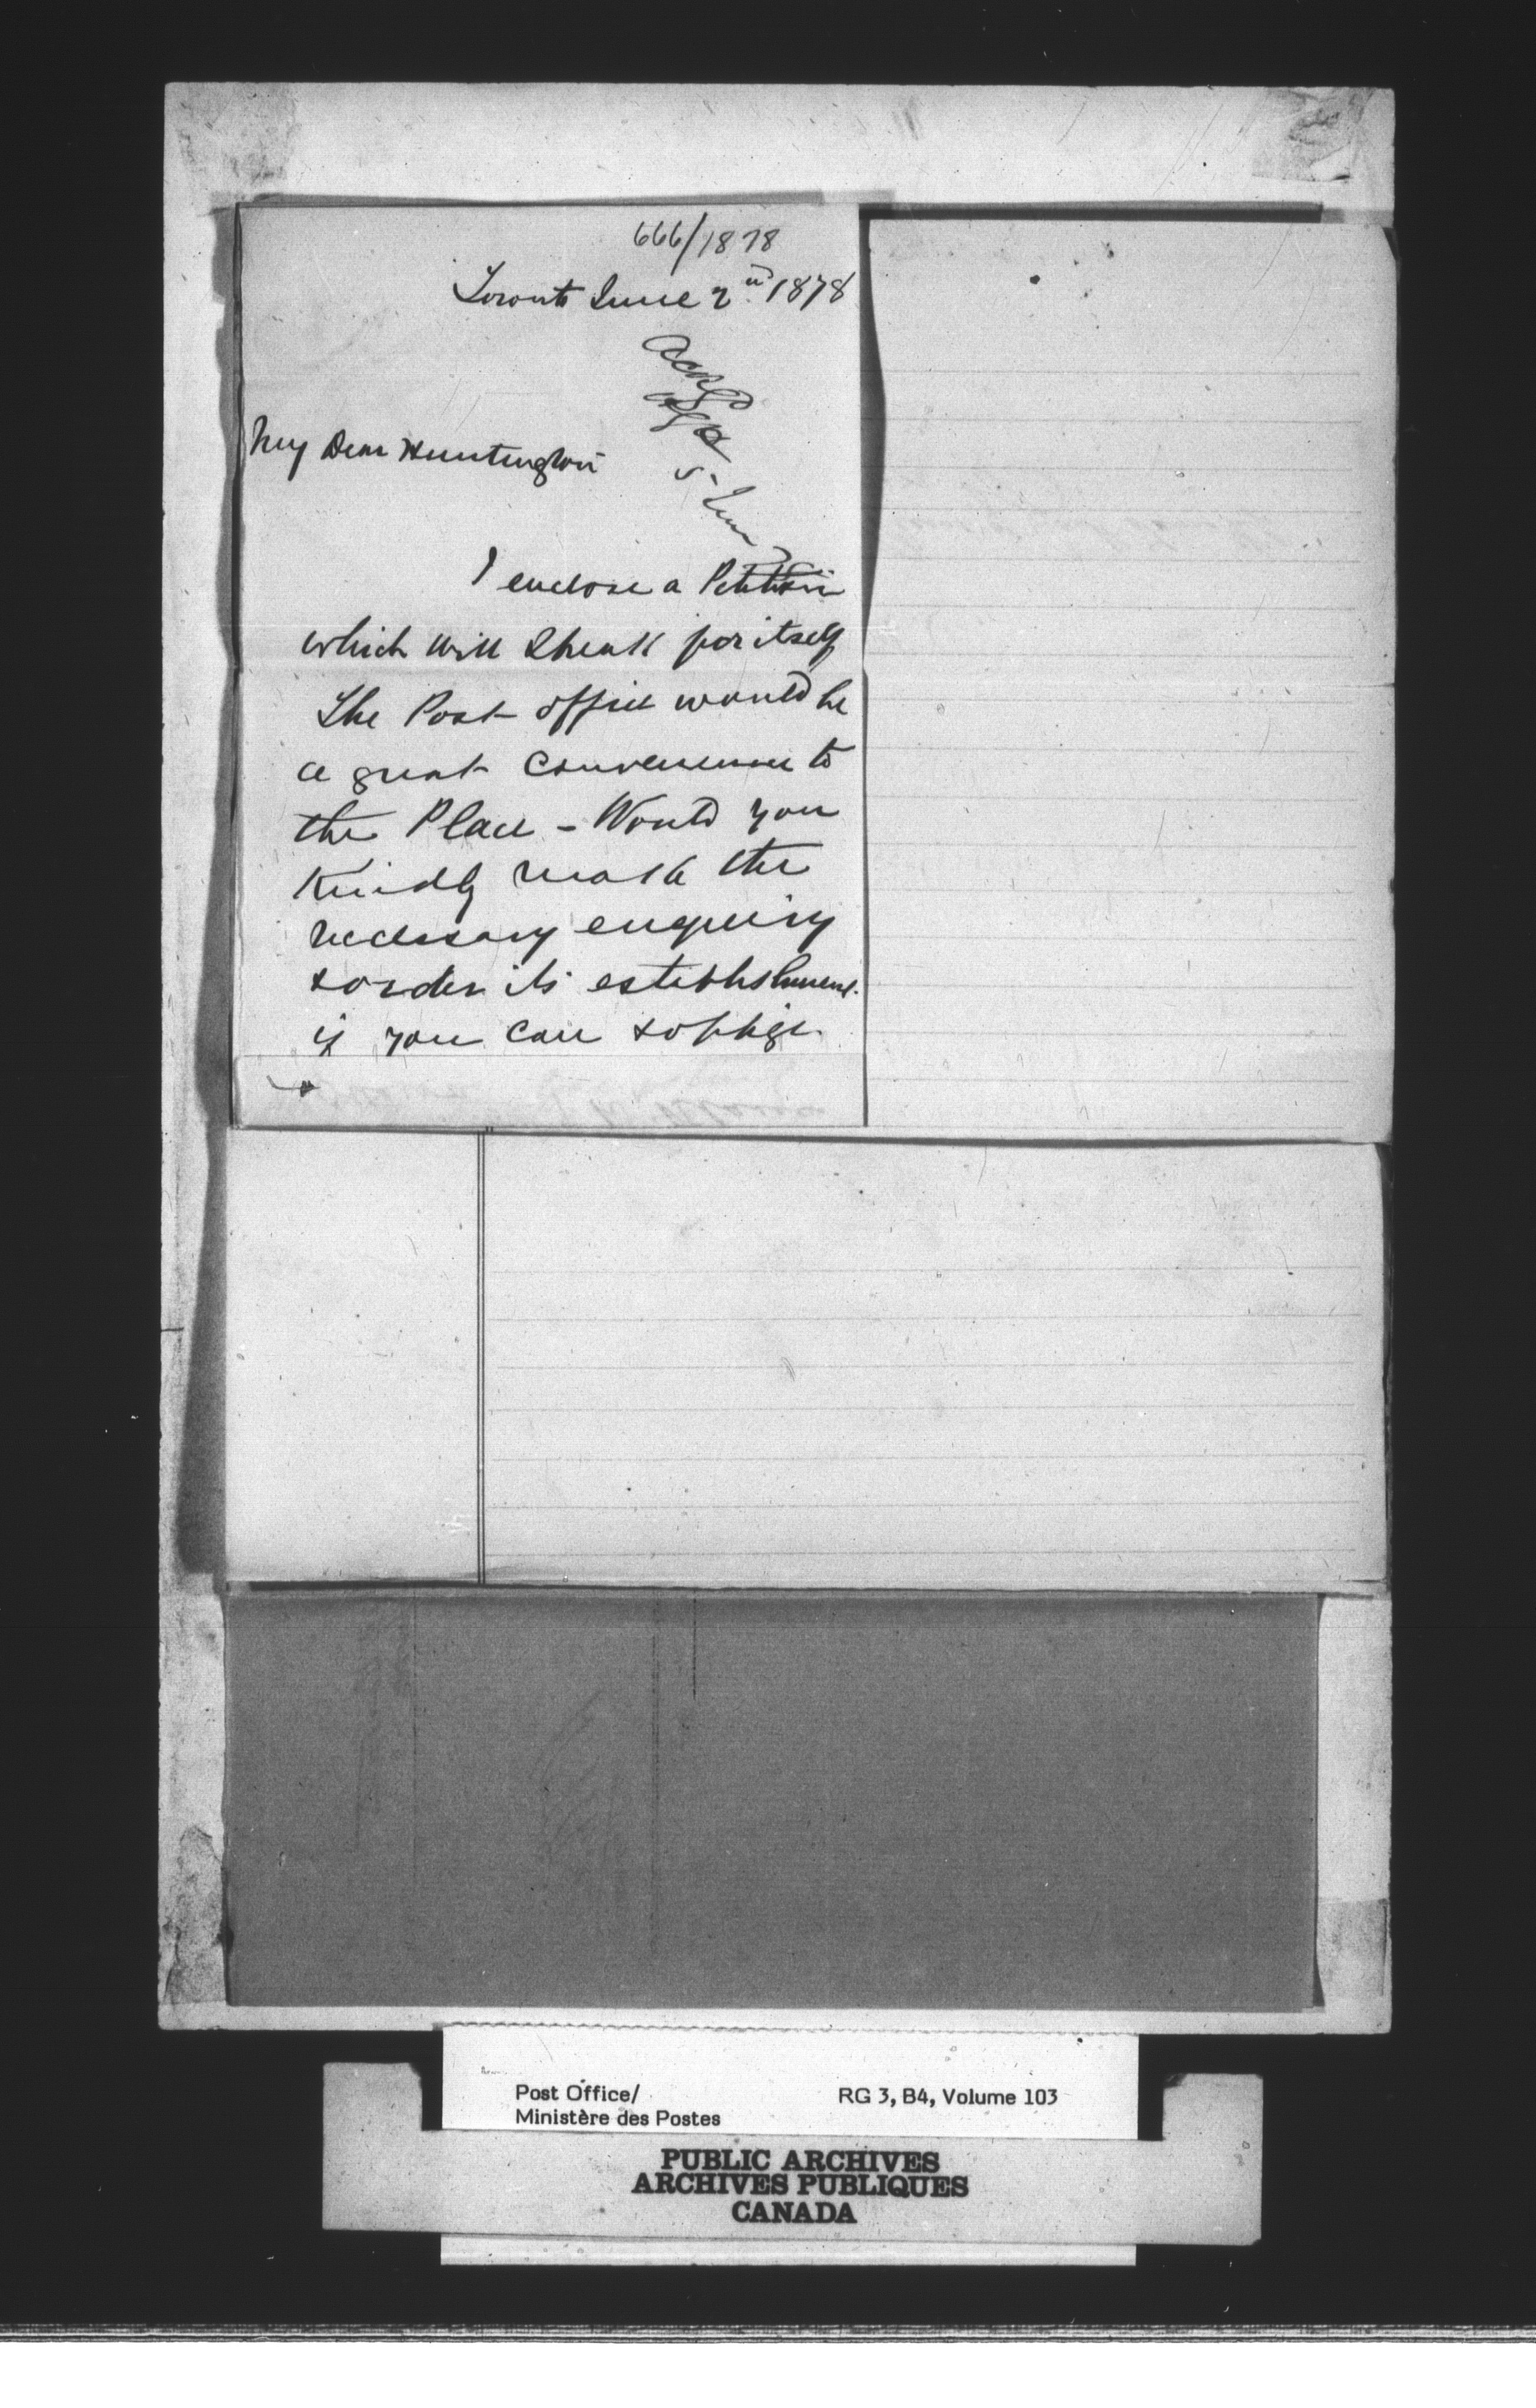 666/1878
Toronto June 2nd 1878
Ackgd
5 June
My Dear Huntington
I enclose a Petition
which will speak for itself
The Post office would be
a great convenience to
the Place - Would you
Kindly make the
necessary enquiry
& order its establishment
if you can & oblige
Post Office/
Ministère des Postes
RG 3, B4, Volume 103
PUBLIC ARCHIVES
ARCHIVES PUBLIQUES
CANADA